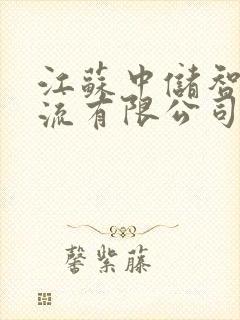 江蘇中儲智
流有限公司
馨紫藤